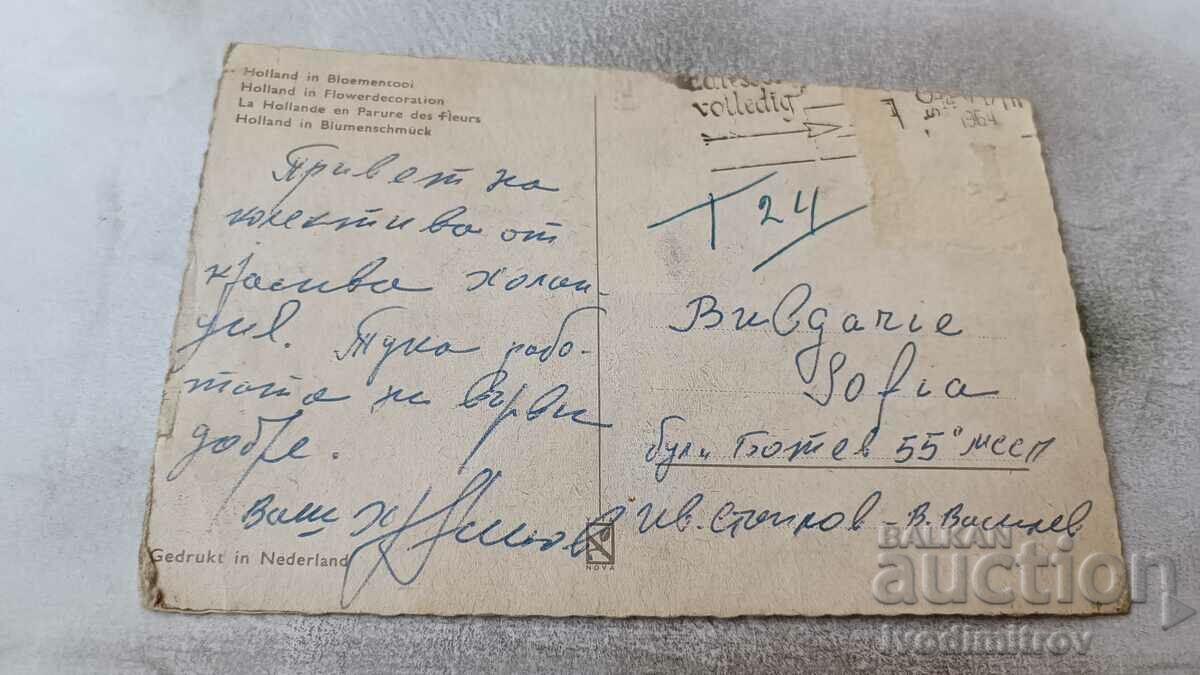 Holland in Bloementooi
Holland in Flowerdecoration
La Hollande en Parure des fleurs
Holland in Blumenschmück
Привет на
колектива от
красива Холан-
дия. Тука рабо-
тата не върви
добре.
Ваш
Gedrukt in Nederland
NOVA
volledig
1964
T 24
Bulgarie
Sofia
бул. Ботев 55
Ив. Стоилов - В. Василев
BALKAN
auction
ivodimitrov